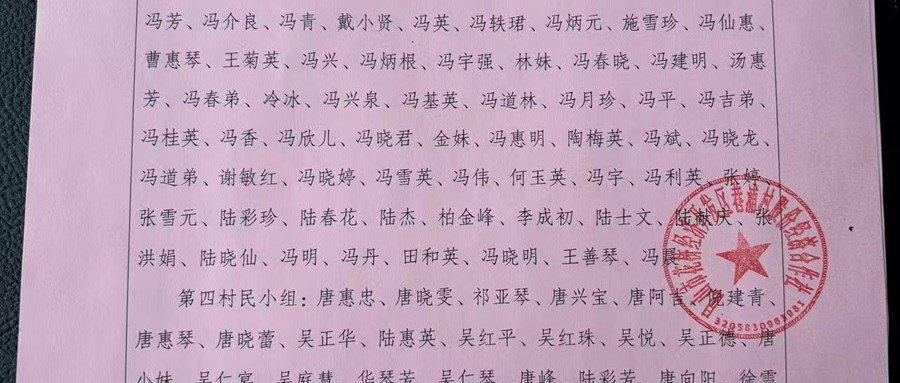 冯芳、冯介良、冯青、戴小贤、冯英、冯轶珺、冯炳元、施雪珍、冯仙惠、
曹惠琴、王菊英、冯兴、冯炳根、冯宇强、林妹、冯春晓、冯建明、汤惠
芳、冯春弟、冷冰、冯兴泉、冯基英、冯道林、冯月珍、冯平、冯吉弟、
冯桂英、冯香、冯欣儿、冯晓君、金妹、冯惠明、陶梅英、冯斌、冯晓龙、
冯道弟、谢敏红、冯晓婷、冯雪英、冯伟、何玉英、冯宇、冯利英、张婷、
张雪元、陆彩珍、陆春花、陆杰、柏金峰、李成初、陆士文、陆献庆、张
洪娟、陆晓仙、冯明、冯丹、田和英、冯晓明、王善琴、冯晨
第四村民小组：唐惠忠、唐晓雯、祁亚琴、唐兴宝、唐阿吉、倪建青、
唐惠琴、唐晓蕾、吴正华、陆惠英、吴红平、吴红珠、吴悦、吴正德、唐
小妹、吴仁宴、吴庭慧、华琴芳、吴仁琴、唐峰、陆彩芳、唐向阳、徐雪
股份经济合作社